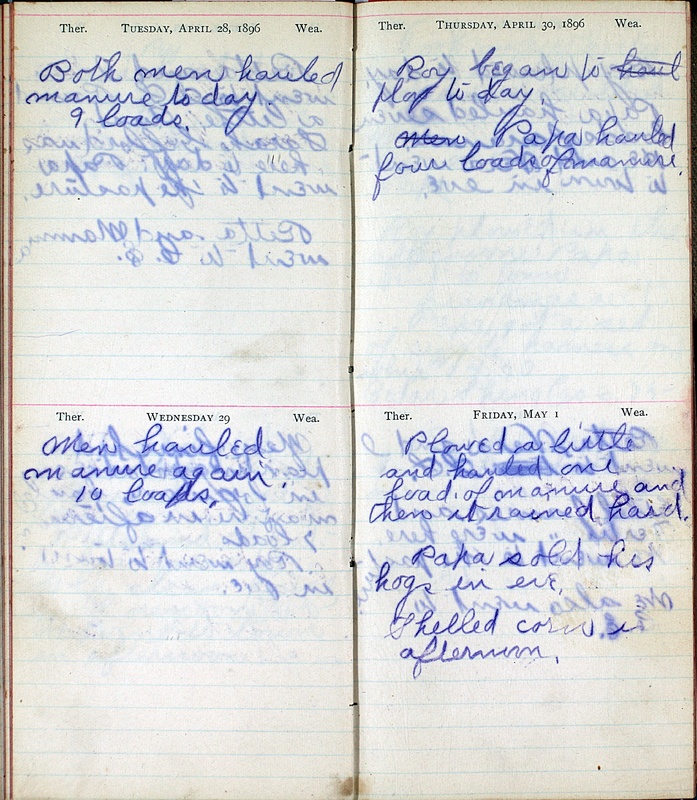 Ther. Tuesday, April 28, 1896 Wea.
Both men hauled
manure to day.
9 loads.
Ther. Wednesday 29 Wea.
Men hauled
manure again.
10 loads.
Ther. Thursday, April 30, 1896 Wea.
Roy began to haul
plow to day.
Men Papa hauled
four loads of manure.
Ther. Friday, May 1 Wea.
Plowed a little
and hauled one
load of manure and
then it rained hard.
Papa sold his
hogs in eve.
Shelled corn in
afternoon.